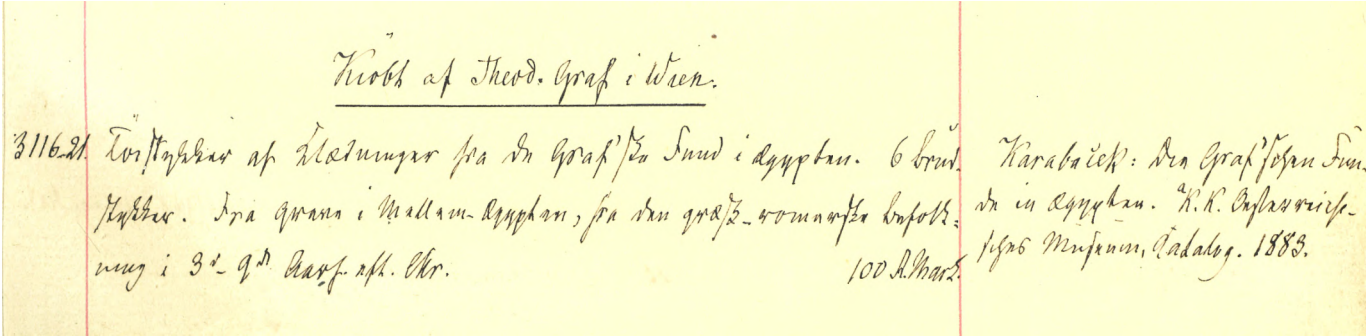 Kiöbt af Theod. Graf i Wien.
3116-21. Töistykker af Klædninger fra de Graf'ske Fund i Ægypten. 6 Brud-
stykker. Fra Grave i Mellem-Ægypten, fra den græsk-romerske Befolk-
ning i 3d-9de Aarh. eft. Chr. 100 R.Mark.
Karabaček: Die Graf'schen Fun-
de in Ægypten. K.K. Oesterreichi-
sches Museum, Catalog. 1883.